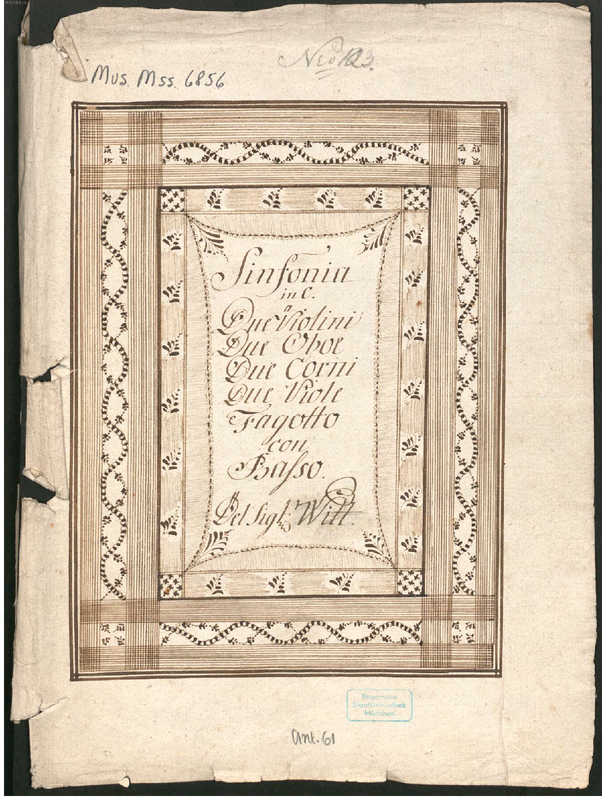 Mus. Mss. 6856
Nro 123.
Sinfonia
in C.
a
Due Violini
Due Oboe
Due Corni
Due Viole
Fagotto
con
Basso.
Del Sigl: Witt.
Bayerische
Staatsbibliothek
München
Ant. 61